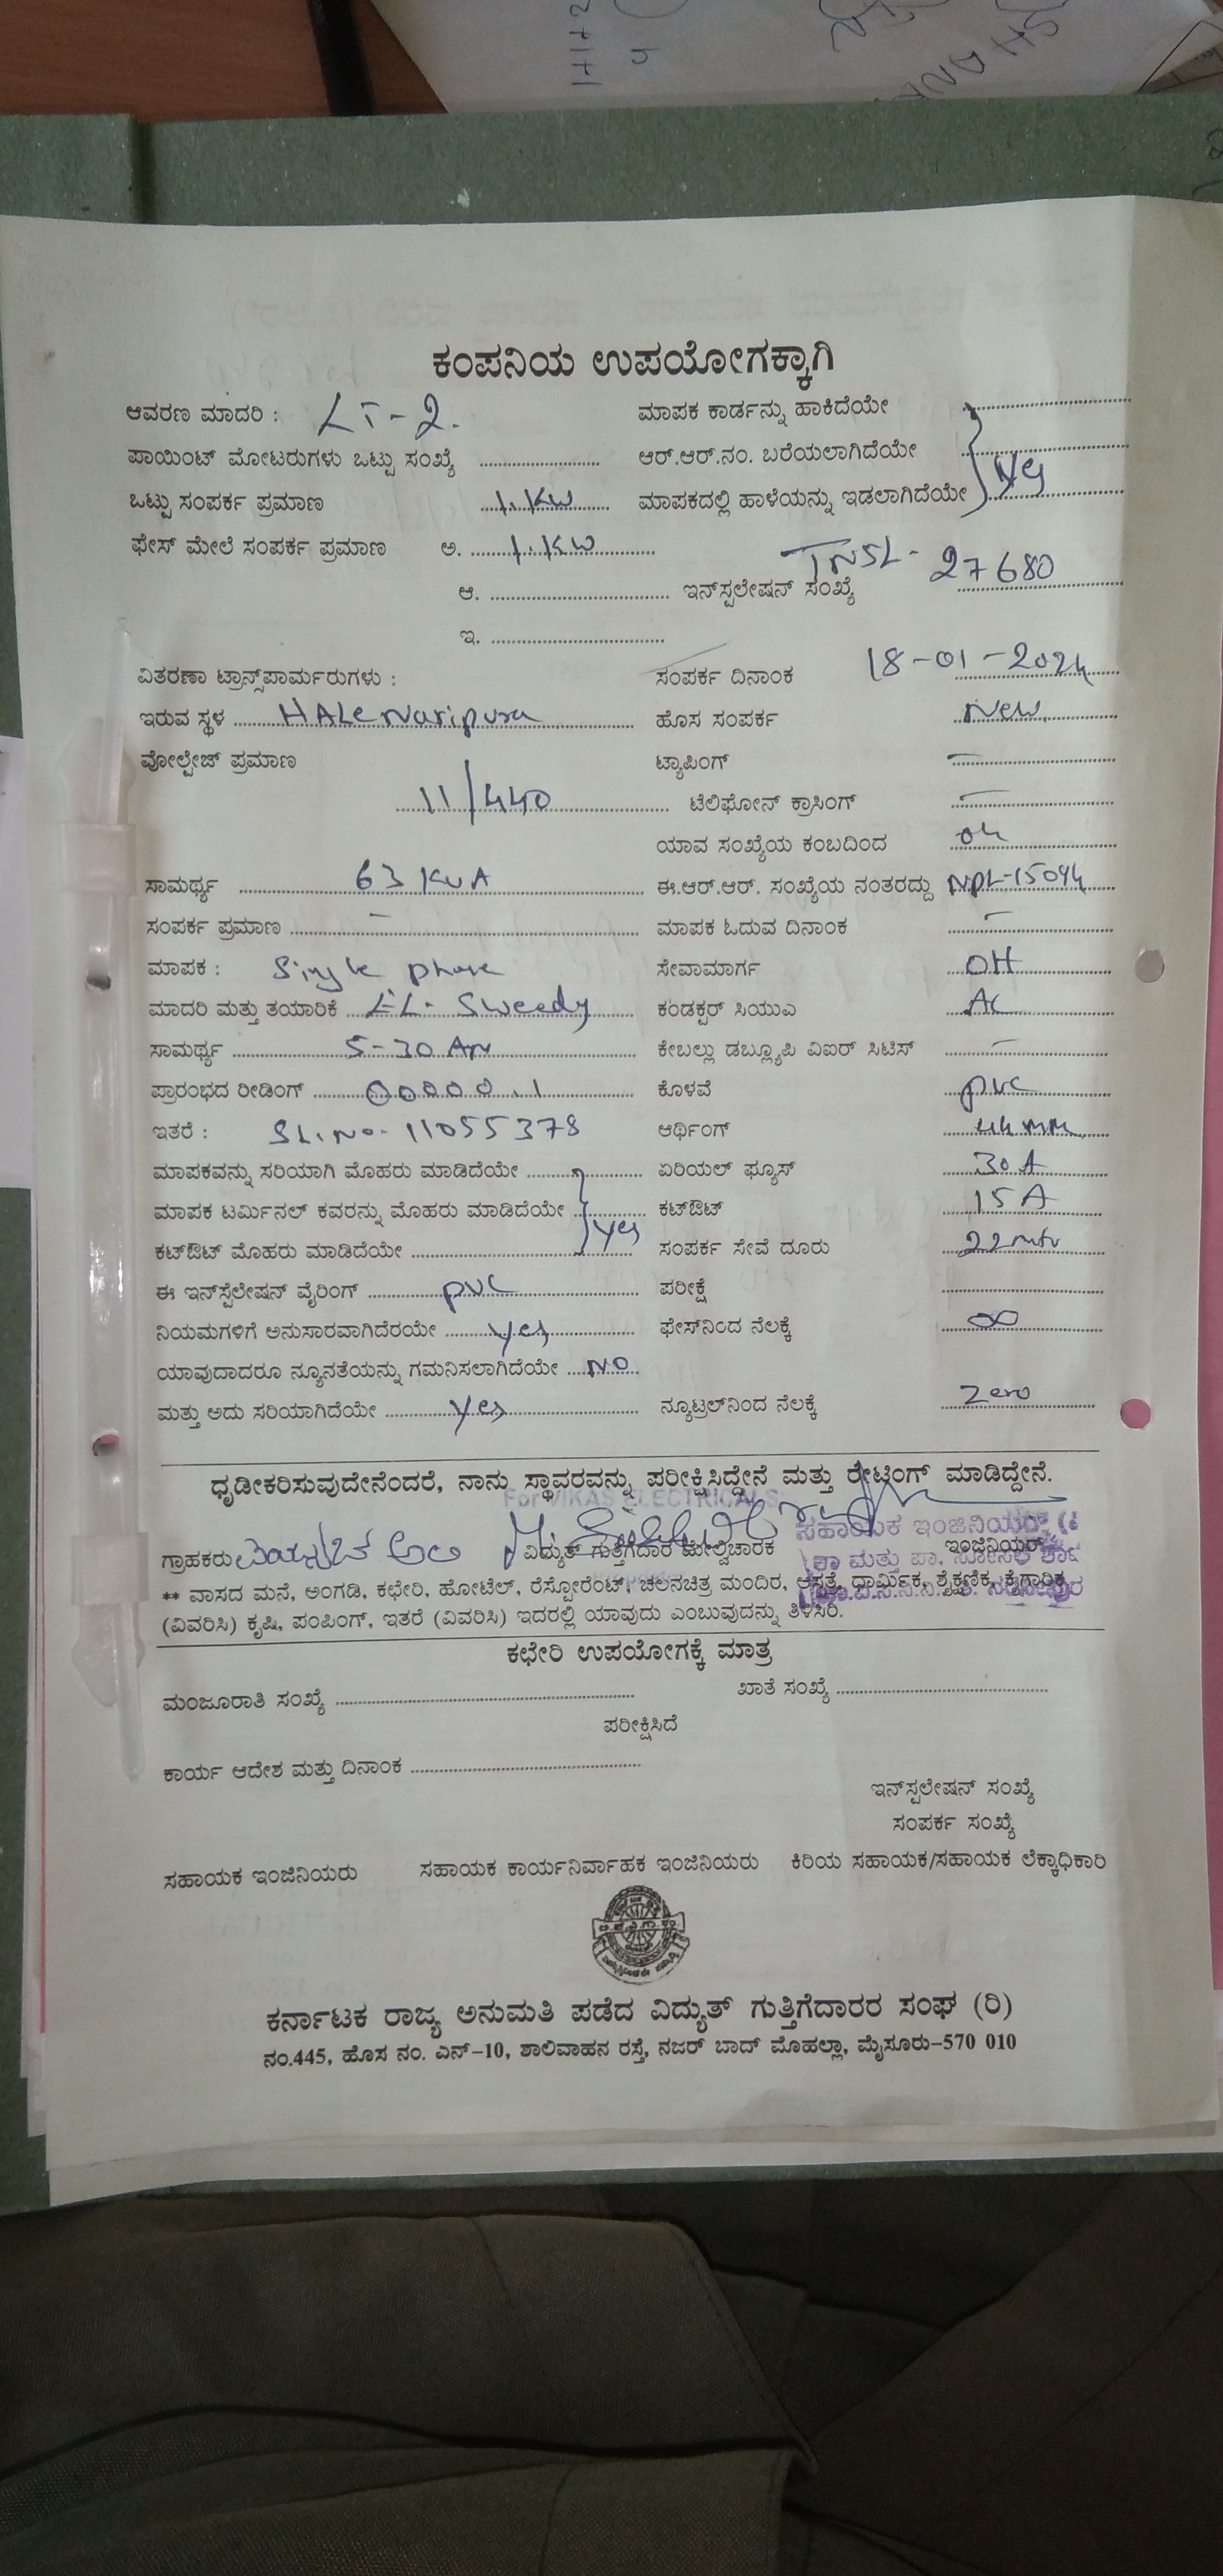 ಕಂಪನಿಯ ಉಪಯೋಗಕ್ಕಾಗಿ
ಆವರಣ ಮಾದರಿ : LT-2. ಮಾಪಕ ಕಾರ್ಡನ್ನು ಹಾಕಿದೆಯೇ
ಪಾಯಿಂಟ್ ಮೋಟರುಗಳು ಒಟ್ಟು ಸಂಖ್ಯೆ ಆರ್.ಆರ್.ನಂ. ಬರೆಯಲಾಗಿದೆಯೇ
ಒಟ್ಟು ಸಂಪರ್ಕ ಪ್ರಮಾಣ 1.KW ಮಾಪಕದಲ್ಲಿ ಹಾಳೆಯನ್ನು ಇಡಲಾಗಿದೆಯೇ yes
ಫೇಸ್ ಮೇಲೆ ಸಂಪರ್ಕ ಪ್ರಮಾಣ ಅ. 1.KW
ಆ. ಇನ್‌ಸ್ಪಲೇಷನ್ ಸಂಖ್ಯೆ TNSL- 27680
ಇ.
ವಿತರಣಾ ಟ್ರಾನ್ಸ್‌ಪಾರ್ಮರುಗಳು : ಸಂಪರ್ಕ ದಿನಾಂಕ 18-01-2024
ಇರುವ ಸ್ಥಳ HALeNaripura ಹೊಸ ಸಂಪರ್ಕ New
ವೋಲ್ಟೇಜ್ ಪ್ರಮಾಣ ಟ್ಯಾಪಿಂಗ್ —
11/440 ಟೆಲಿಫೋನ್ ಕ್ರಾಸಿಂಗ್ —
ಯಾವ ಸಂಖ್ಯೆಯ ಕಂಬದಿಂದ
ಸಾಮರ್ಥ್ಯ 63 KVA ಈ.ಆರ್.ಆರ್. ಸಂಖ್ಯೆಯ ನಂತರದ್ದು NPL-15094
ಸಂಪರ್ಕ ಪ್ರಮಾಣ — ಮಾಪಕ ಓದುವ ದಿನಾಂಕ —
ಮಾಪಕ : Single phase ಸೇವಾಮಾರ್ಗ OH
ಮಾದರಿ ಮತ್ತು ತಯಾರಿಕೆ EL- Sweedy ಕಂಡಕ್ಟರ್ ಸಿಯುಎ AC
ಸಾಮರ್ಥ್ಯ 5-30 ಕೇಬಲ್ಲು ಡಬ್ಲ್ಯೂಪಿ ವಿಐರ್ ಸಿಟಿಸ್ —
ಪ್ರಾರಂಭದ ರೀಡಿಂಗ್ 00000.1 ಕೊಳವೆ pvc
ಇತರೆ : SL.No- 11055378 ಆರ್ಥಿಂಗ್
ಮಾಪಕವನ್ನು ಸರಿಯಾಗಿ ಮೊಹರು ಮಾಡಿದೆಯೇ ಏರಿಯಲ್ ಫ್ಯೂಸ್ 30 A
ಮಾಪಕ ಟರ್ಮಿನಲ್ ಕವರನ್ನು ಮೊಹರು ಮಾಡಿದೆಯೇ yes ಕಟ್‌ಔಟ್ 15 A
ಕಟ್‌ಔಟ್ ಮೊಹರು ಮಾಡಿದೆಯೇ ಸಂಪರ್ಕ ಸೇವೆ ದೂರು 22
ಈ ಇನ್‌ಸ್ಪೆಲೇಷನ್ ವೈರಿಂಗ್ pvc ಪರೀಕ್ಷೆ
ನಿಯಮಗಳಿಗೆ ಅನುಸಾರವಾಗಿದೆರಯೇ yes ಫೇಸ್‌ನಿಂದ ನೆಲಕ್ಕೆ ∞
ಯಾವುದಾದರೂ ನ್ಯೂನತೆಯನ್ನು ಗಮನಿಸಲಾಗಿದೆಯೇ NO
ಮತ್ತು ಅದು ಸರಿಯಾಗಿದೆಯೇ yes ನ್ಯೂಟ್ರಲ್‌ನಿಂದ ನೆಲಕ್ಕೆ Zero
ಧೃಡೀಕರಿಸುವುದೇನೆಂದರೆ, ನಾನು ಸ್ಥಾವರವನ್ನು ಪರೀಕ್ಷಿಸಿದ್ದೇನೆ ಮತ್ತು ರೇಟಿಂಗ್ ಮಾಡಿದ್ದೇನೆ.
For VIKAS ELECTRICALS
ಸಹಾಯಕ ಇಂಜಿನಿಯರ್
ಗ್ರಾಹಕರು ವಿದ್ಯುತ್ ಗುತ್ತಿಗೆದಾರ ಮೇಲ್ವಿಚಾರಕ ಇಂಜಿನಿಯರ್
** ವಾಸದ ಮನೆ, ಅಂಗಡಿ, ಕಛೇರಿ, ಹೋಟೆಲ್, ರೆಸ್ಟೋರೆಂಟ್, ಚಲನಚಿತ್ರ ಮಂದಿರ, ಆಸ್ಪತ್ರೆ, ಧಾರ್ಮಿಕ, ಶೈಕ್ಷಣಿಕ, ಕೈಗಾರಿಕ
(ವಿವರಿಸಿ) ಕೃಷಿ, ಪಂಪಿಂಗ್, ಇತರೆ (ವಿವರಿಸಿ) ಇದರಲ್ಲಿ ಯಾವುದು ಎಂಬುವುದನ್ನು ತಿಳಿಸಿರಿ.
ಕಛೇರಿ ಉಪಯೋಗಕ್ಕೆ ಮಾತ್ರ
ಮಂಜೂರಾತಿ ಸಂಖ್ಯೆ ಖಾತೆ ಸಂಖ್ಯೆ
ಪರೀಕ್ಷಿಸಿದೆ
ಕಾರ್ಯ ಆದೇಶ ಮತ್ತು ದಿನಾಂಕ
ಇನ್‌ಸ್ಪಲೇಷನ್ ಸಂಖ್ಯೆ
ಸಂಪರ್ಕ ಸಂಖ್ಯೆ
ಸಹಾಯಕ ಇಂಜಿನಿಯರು ಸಹಾಯಕ ಕಾರ್ಯನಿರ್ವಾಹಕ ಇಂಜಿನಿಯರು ಕಿರಿಯ ಸಹಾಯಕ/ಸಹಾಯಕ ಲೆಕ್ಕಾಧಿಕಾರಿ
ಕರ್ನಾಟಕ ರಾಜ್ಯ ಅನುಮತಿ ಪಡೆದ ವಿದ್ಯುತ್ ಗುತ್ತಿಗೆದಾರರ ಸಂಘ (ರಿ)
ನಂ.445, ಹೊಸ ನಂ. ಎನ್-10, ಶಾಲಿವಾಹನ ರಸ್ತೆ, ನಜರ್ ಬಾದ್ ಮೊಹಲ್ಲಾ, ಮೈಸೂರು-570 010